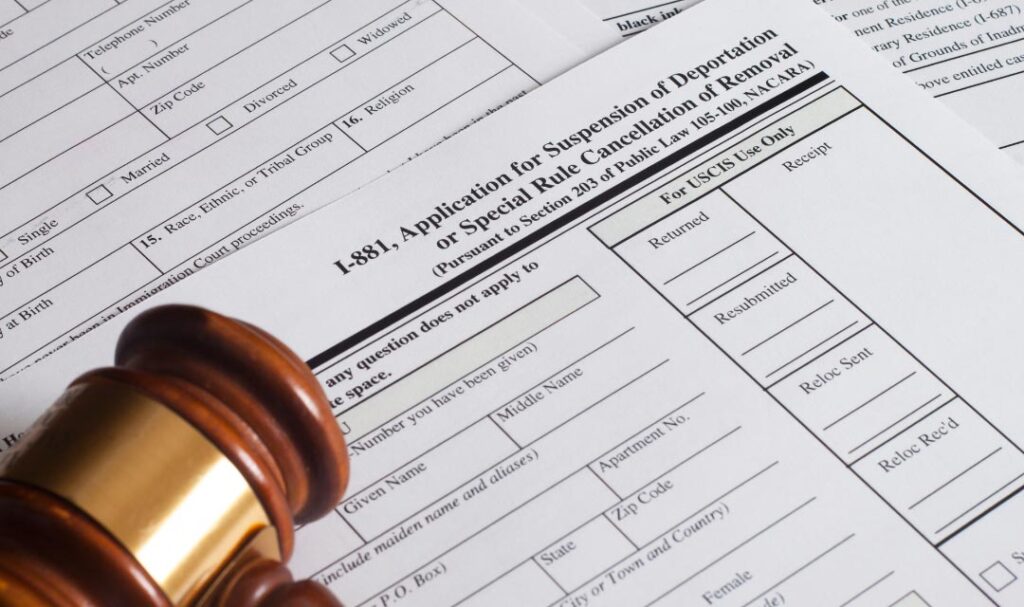 Telephone Number
(      )
Apt. Number
Zip Code
Widowed
Divorced
Married
Single
16. Religion
15. Race, Ethnic, or Tribal Group
of Birth
at Birth
been in Immigration Court proceedings.
black ink
for one of the
nent Residence (I-687)
rary Residence (I-687)
of Grounds of Inadm
ove entitled cas
I-881, Application for Suspension of Deportation
or Special Rule Cancellation of Removal
(Pursuant to Section 203 of Public Law 105-100, NACARA)
For USCIS Use Only
Returned
Receipt
Resubmitted
Reloc Sent
Reloc Rec'd
any question does not apply to
space.
-Number you have been given)
Given Name
Middle Name
include maiden name and aliases)
Apartment No.
P.O. Box)
State
Zip Code
City or Town and Country)
Female